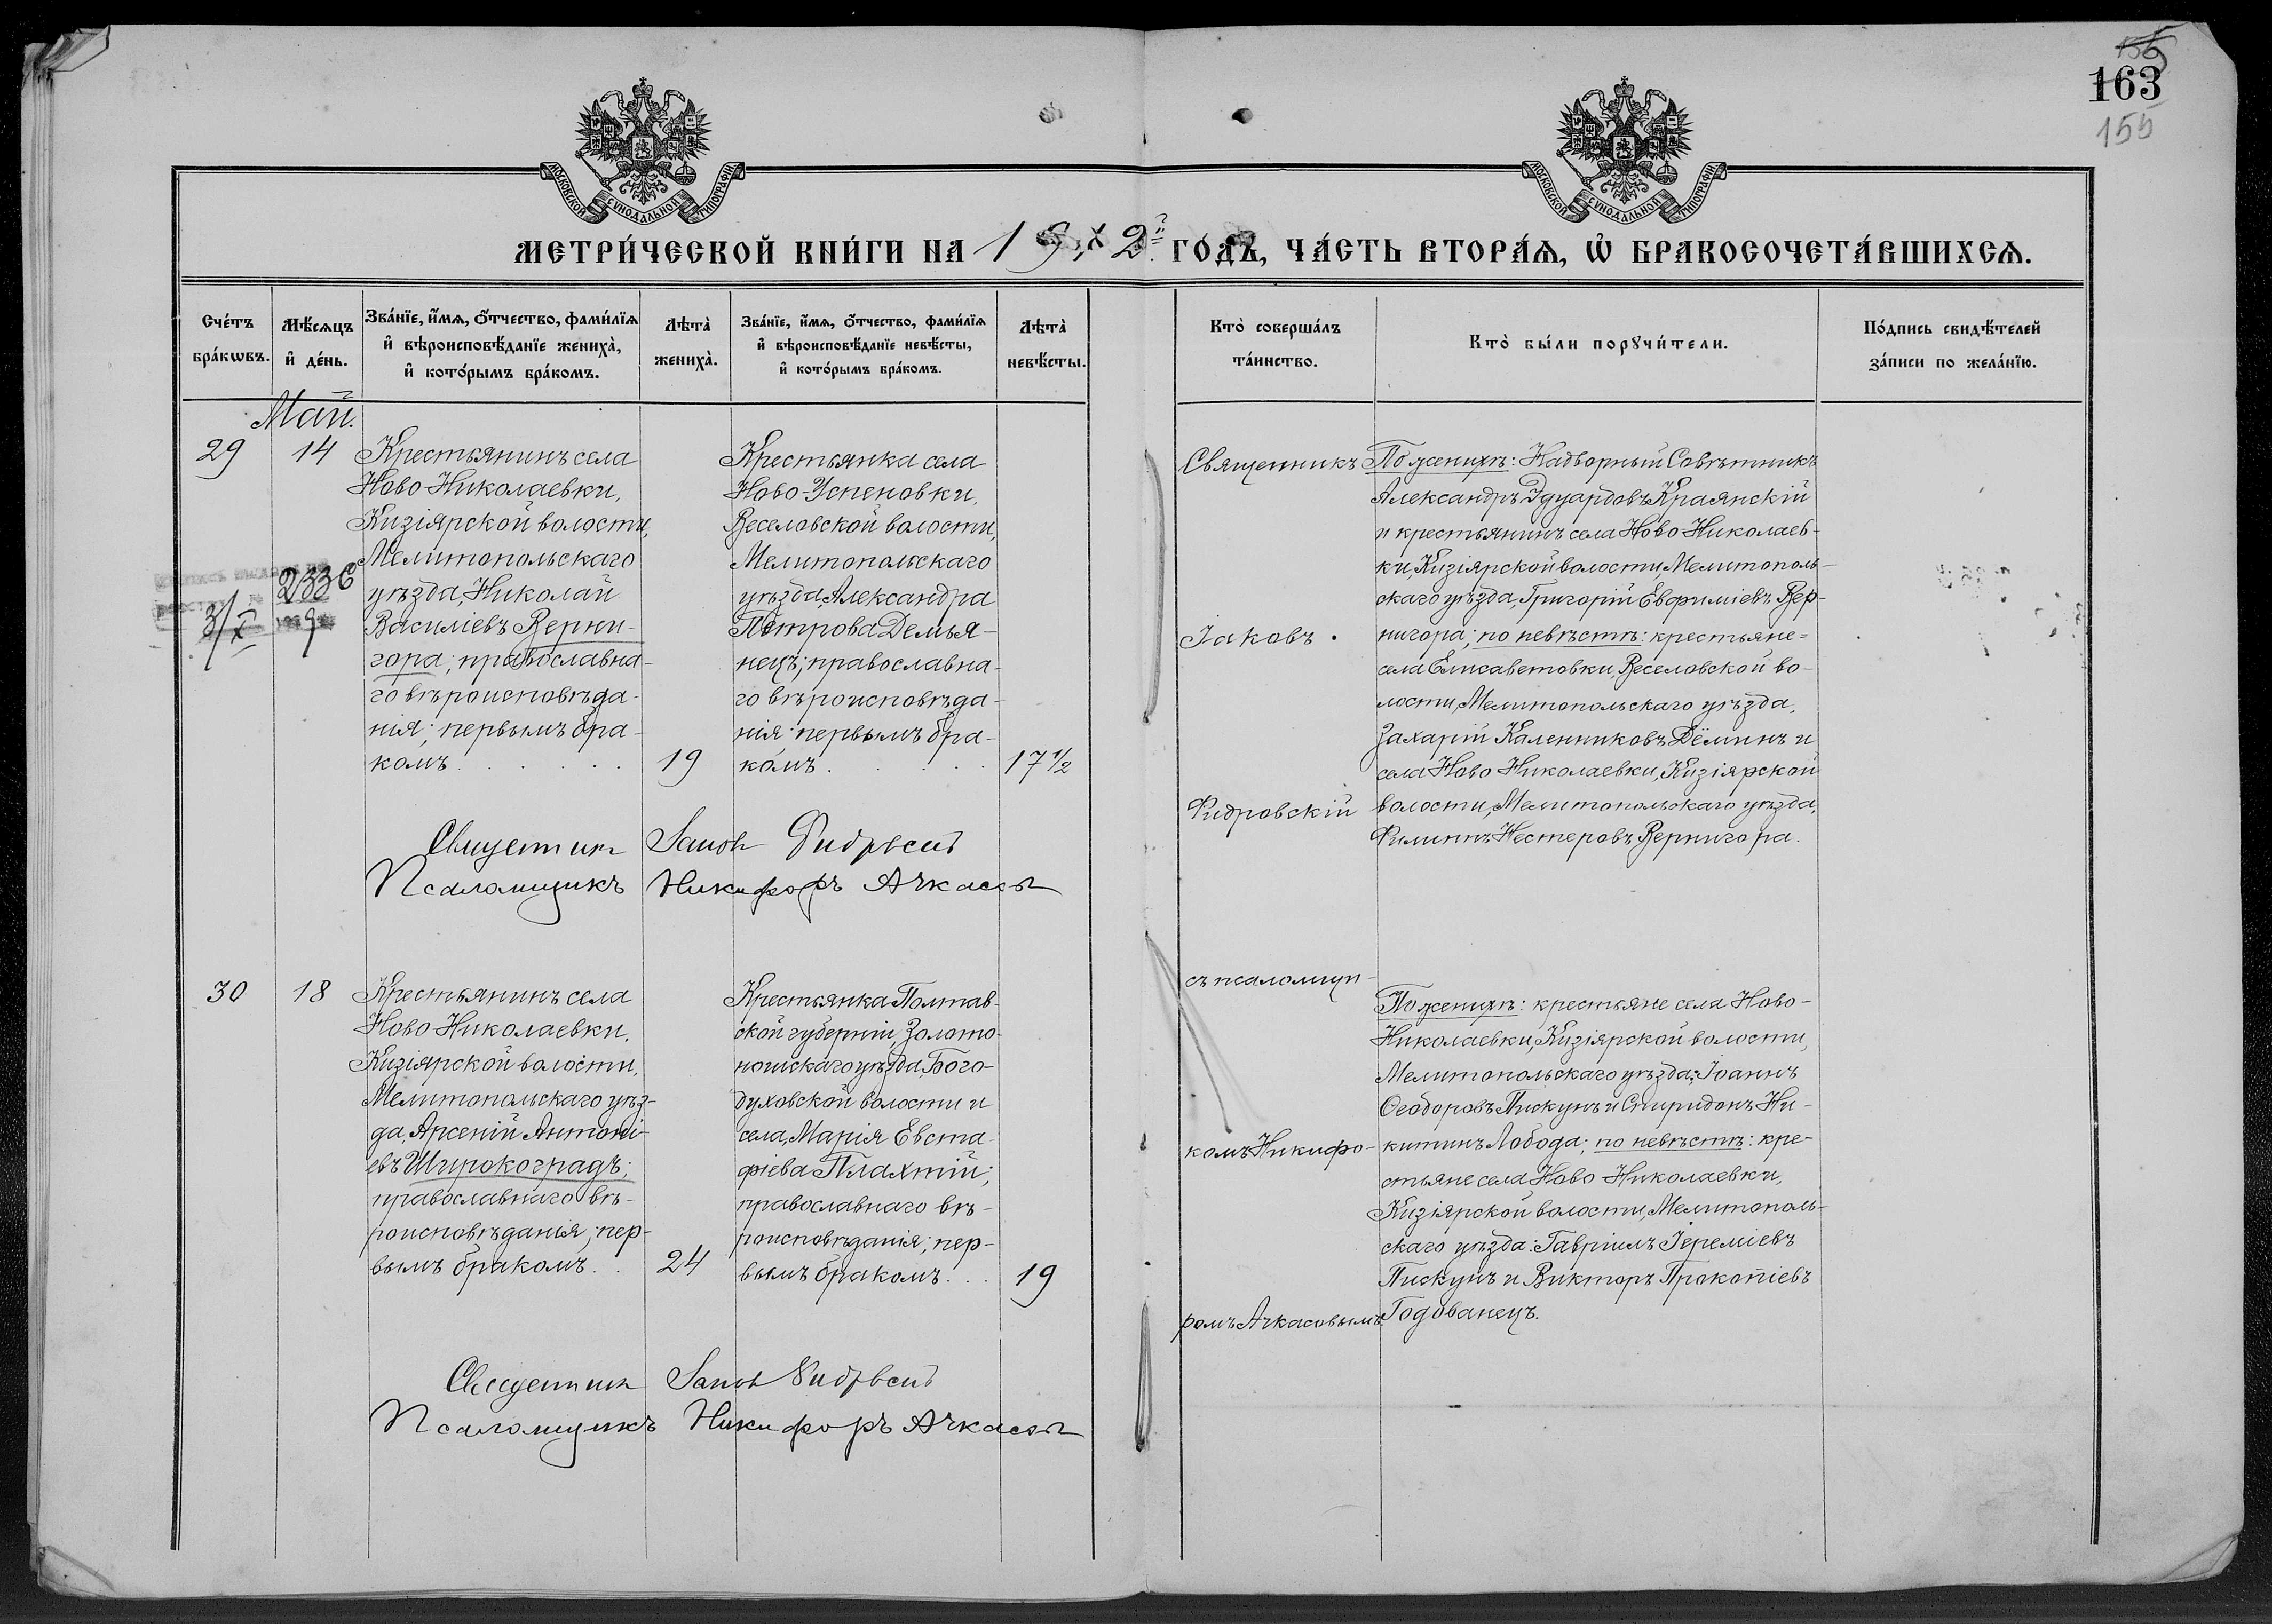 163
155
МОСКОВСКОЙ СѴНОДАЛЬНОЙ ТИПОГРАФІИ
МОСКОВСКОЙ СѴНОДАЛЬНОЙ ТИПОГРАФІИ
МЕТРИ́ЧЕСКОЙ КНИ́ГИ НА 19 2й ГО́ДЪ, ЧА́СТЬ ВТОРА́Ѧ, Ѡ҆ БРАКОСОЧЕТА́ВШИХСѦ.
Сче́тъ бра́кѡвъ.
Мѣ́сѧцъ и҆ де́нь.
Зва́нїе, и҆́мѧ, ѻ҆́тчество, фами́лїѧ и҆ вѣроисповѣ́данїе жениха̀, и҆ кото́рымъ бра́комъ.
Лѣта̀ жениха̀.
Зва́нїе, и҆́мѧ, ѻ҆́тчество, фами́лїѧ и҆ вѣроисповѣ́данїе невѣ́сты, и҆ кото́рымъ бра́комъ.
Лѣта̀ невѣ́сты.
Кто̀ соверша́лъ та́инство.
Кто̀ бы́ли порꙋчи́тели.
По́дпись свидѣ́телей за́писи по жела́нїю.
Май.
29
14
Крестьянинъ села
Ново-Николаевки,
Кизіярской волости,
Мелитопольскаго
уѣзда, Николай
Василіевъ Верни-
гора; православна-
го вѣроисповѣда-
нія; первымъ бра-
комъ . . . . . .
19
Крестьянка села
Ново-Успеновки,
Веселовской волости,
Мелитопольскаго
уѣзда, Александра
Петрова Демья-
нецъ; православна-
го вѣроисповѣда-
нія; первымъ бра-
комъ . . . . .
17 1/2
2336
3/X
9
Священникъ
Іаковъ
Фидровскій
съ псаломщи-
комъ Никифо-
ромъ Ачкасовымъ.
По женихѣ: Надворный Совѣтникъ
Александръ Эдуардовъ Краянскій
и крестьянинъ села Ново-Николаев-
ки, Кизіярской волости, Мелитополь-
скаго уѣзда, Григорій Евфиміевъ Вер-
нигора; по невѣстѣ: крестьяне=
села Елисаветовки, Веселовской во-
лости, Мелитопольскаго уѣзда,
Захарій Каленниковъ Дёминъ и
села Ново Николаевки, Кизіярской
волости, Мелитопольскаго уѣзда,
Филиппъ Нестеровъ Вернигора.
Священникъ Іаковъ Фидровскій
Псаломщикъ Никифоръ Ачкасовъ
30
18
Крестьянинъ села
Ново Николаевки,
Кизіярской волости,
Мелитопольскаго уѣз-
да, Арсеній Антоні-
евъ Широкоградъ;
православнаго вѣ-
роисповѣданія; пер-
вымъ бракомъ . .
24
Крестьянка Полтав-
ской губерніи, Золото-
ношскаго уѣзда, Бого-
духовской волости и
села, Марія Евста-
фіева Плахтій;
православнаго вѣ-
роисповѣданія; пер-
вымъ бракомъ . . .
19
По женихѣ: крестьяне села Ново-
Николаевки, Кизіярской волости,
Мелитопольскаго уѣзда: Іоаннъ
Ѳеодоровъ Пискунъ и Спиридонъ Ни-
китинъ Лобода; по невѣстѣ: кре-
стьяне села Ново Николаевки,
Кизіярской волости, Мелитополь-
скаго уѣзда: Гавріилъ Іереміевъ
Пискунъ и Викторъ Прокопіевъ
Годованецъ.
Священникъ Іаковъ Фидровскій
Псаломщикъ Никифоръ Ачкасовъ